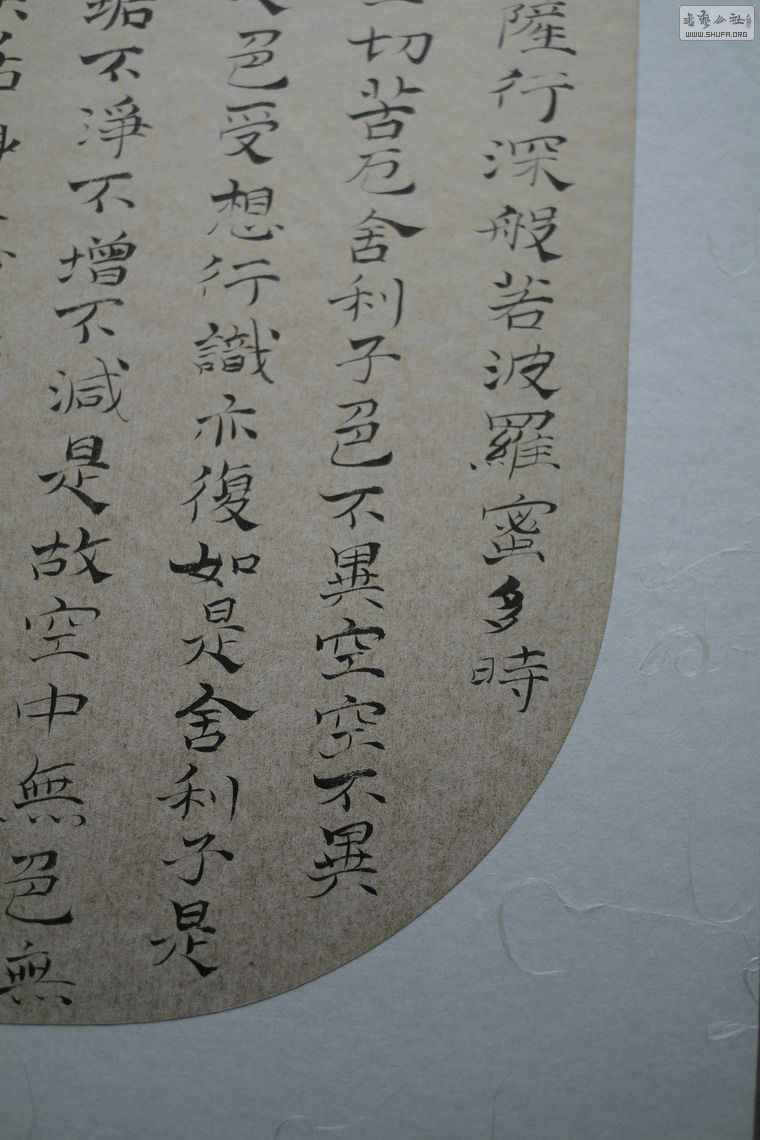 薩行深般若波羅蜜多時
切苦厄舍利子色不異空空不異
色受想行識亦復如是舍利子是
垢不淨不增不減是故空中無色無
書藝公社
WWW.SHUFA.ORG